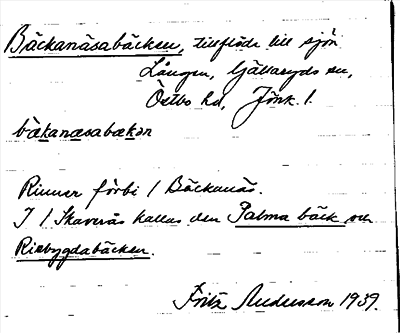 Bäckanäsabäcken, tillflöde till sjön
Lången, Gällaryds sn,
Östbo hd, Jönk. l.
bækanæsabækən
Rinner förbi / Bäckanäs.
I / Skaverås kallas den Palma bäck och
Risbygdabäcken.
Fritz Andersson 1939.